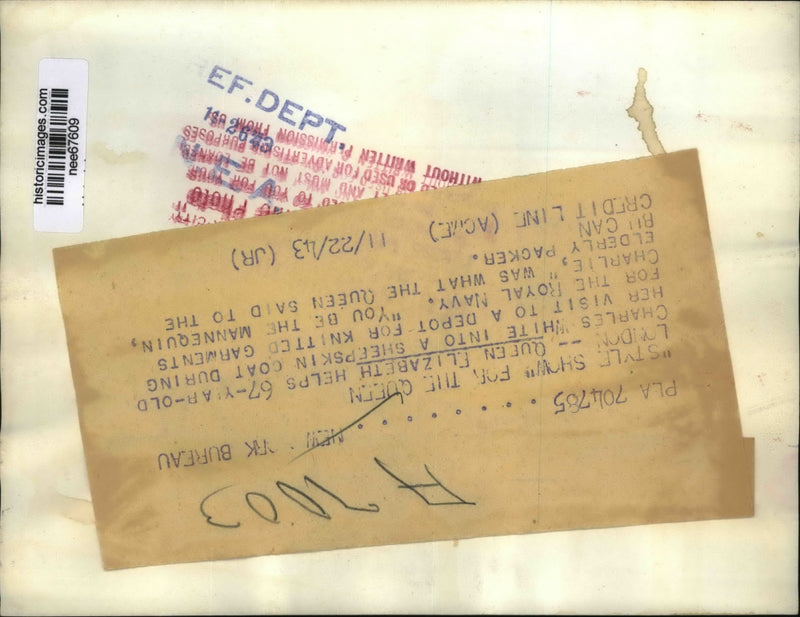 historicimages.com
nee67609
EF. DEPT.
WITHOUT WRITTEN PERMISSION FROM
OR USED FOR ADVERTISING PURPOSES
AND MUST NOT BE
TO YOU FOR YOUR
PHOTO
CITY
A7003
PLA 704785 . . . . . . . . NEW YORK BUREAU
"STYLE SHOW" FOR THE QUEEN
LONDON -- QUEEN ELIZABETH HELPS 67-YEAR-OLD
CHARLES WHITE INTO A SHEEPSKIN COAT DURING
HER VISIT TO A DEPOT FOR KNITTED GARMENTS
FOR THE ROYAL NAVY. "YOU BE THE MANNEQUIN,
CHARLIE," WAS WHAT THE QUEEN SAID TO THE
ELDERLY PACKER.
CAN
CREDIT LINE (ACME) 11/22/43 (JR)